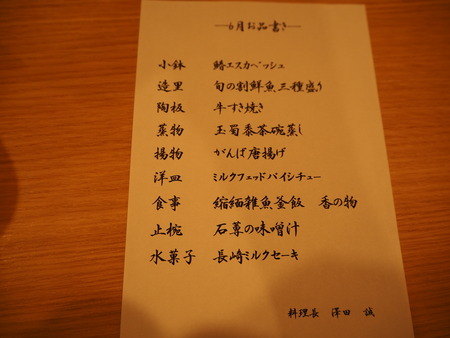 6月お品書き
小鉢 鰆エスカベッシュ
造里 旬の割鮮魚三種盛り
陶板 牛すき焼き
蒸物 玉蜀黍茶碗蒸し
揚物 がんば唐揚げ
洋皿 ミルクフェッドパイシチュー
食事 縮緬雑魚釜飯 香の物
止椀 石蓴の味噌汁
水菓子 長崎ミルクセーキ
料理長 澤田 誠